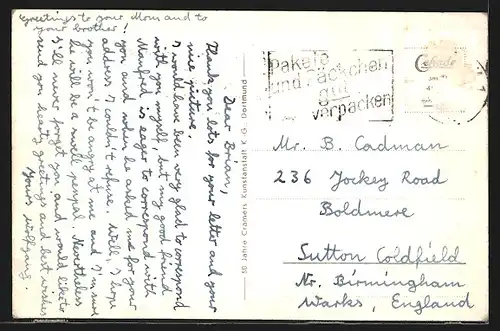 Greetings to your Mom and to
your brother!
Dear Brian,
Thank you lots for your letter and your
nice picture.
I would have been very glad to correspond
with you myself, but my good friend
Manfred is eager to correspond with
you and when he asked me for your
address I couldn't refuse. Well, I hope
you won't be angry at me and I'm sure
he will be a swell penpal. Nevertheless
I'll never forget you and would like to
send you hearty greetings and best wishes
Yours Wolfgang.
50 Jahre Cramers Kunstanstalt K.-G. Dortmund
Pakete
und Päckchen
gut
verpacken
Mr. B. Cadman
236 Jockey Road
Boldmere
Sutton Coldfield
Nr. Birmingham
Warks, England